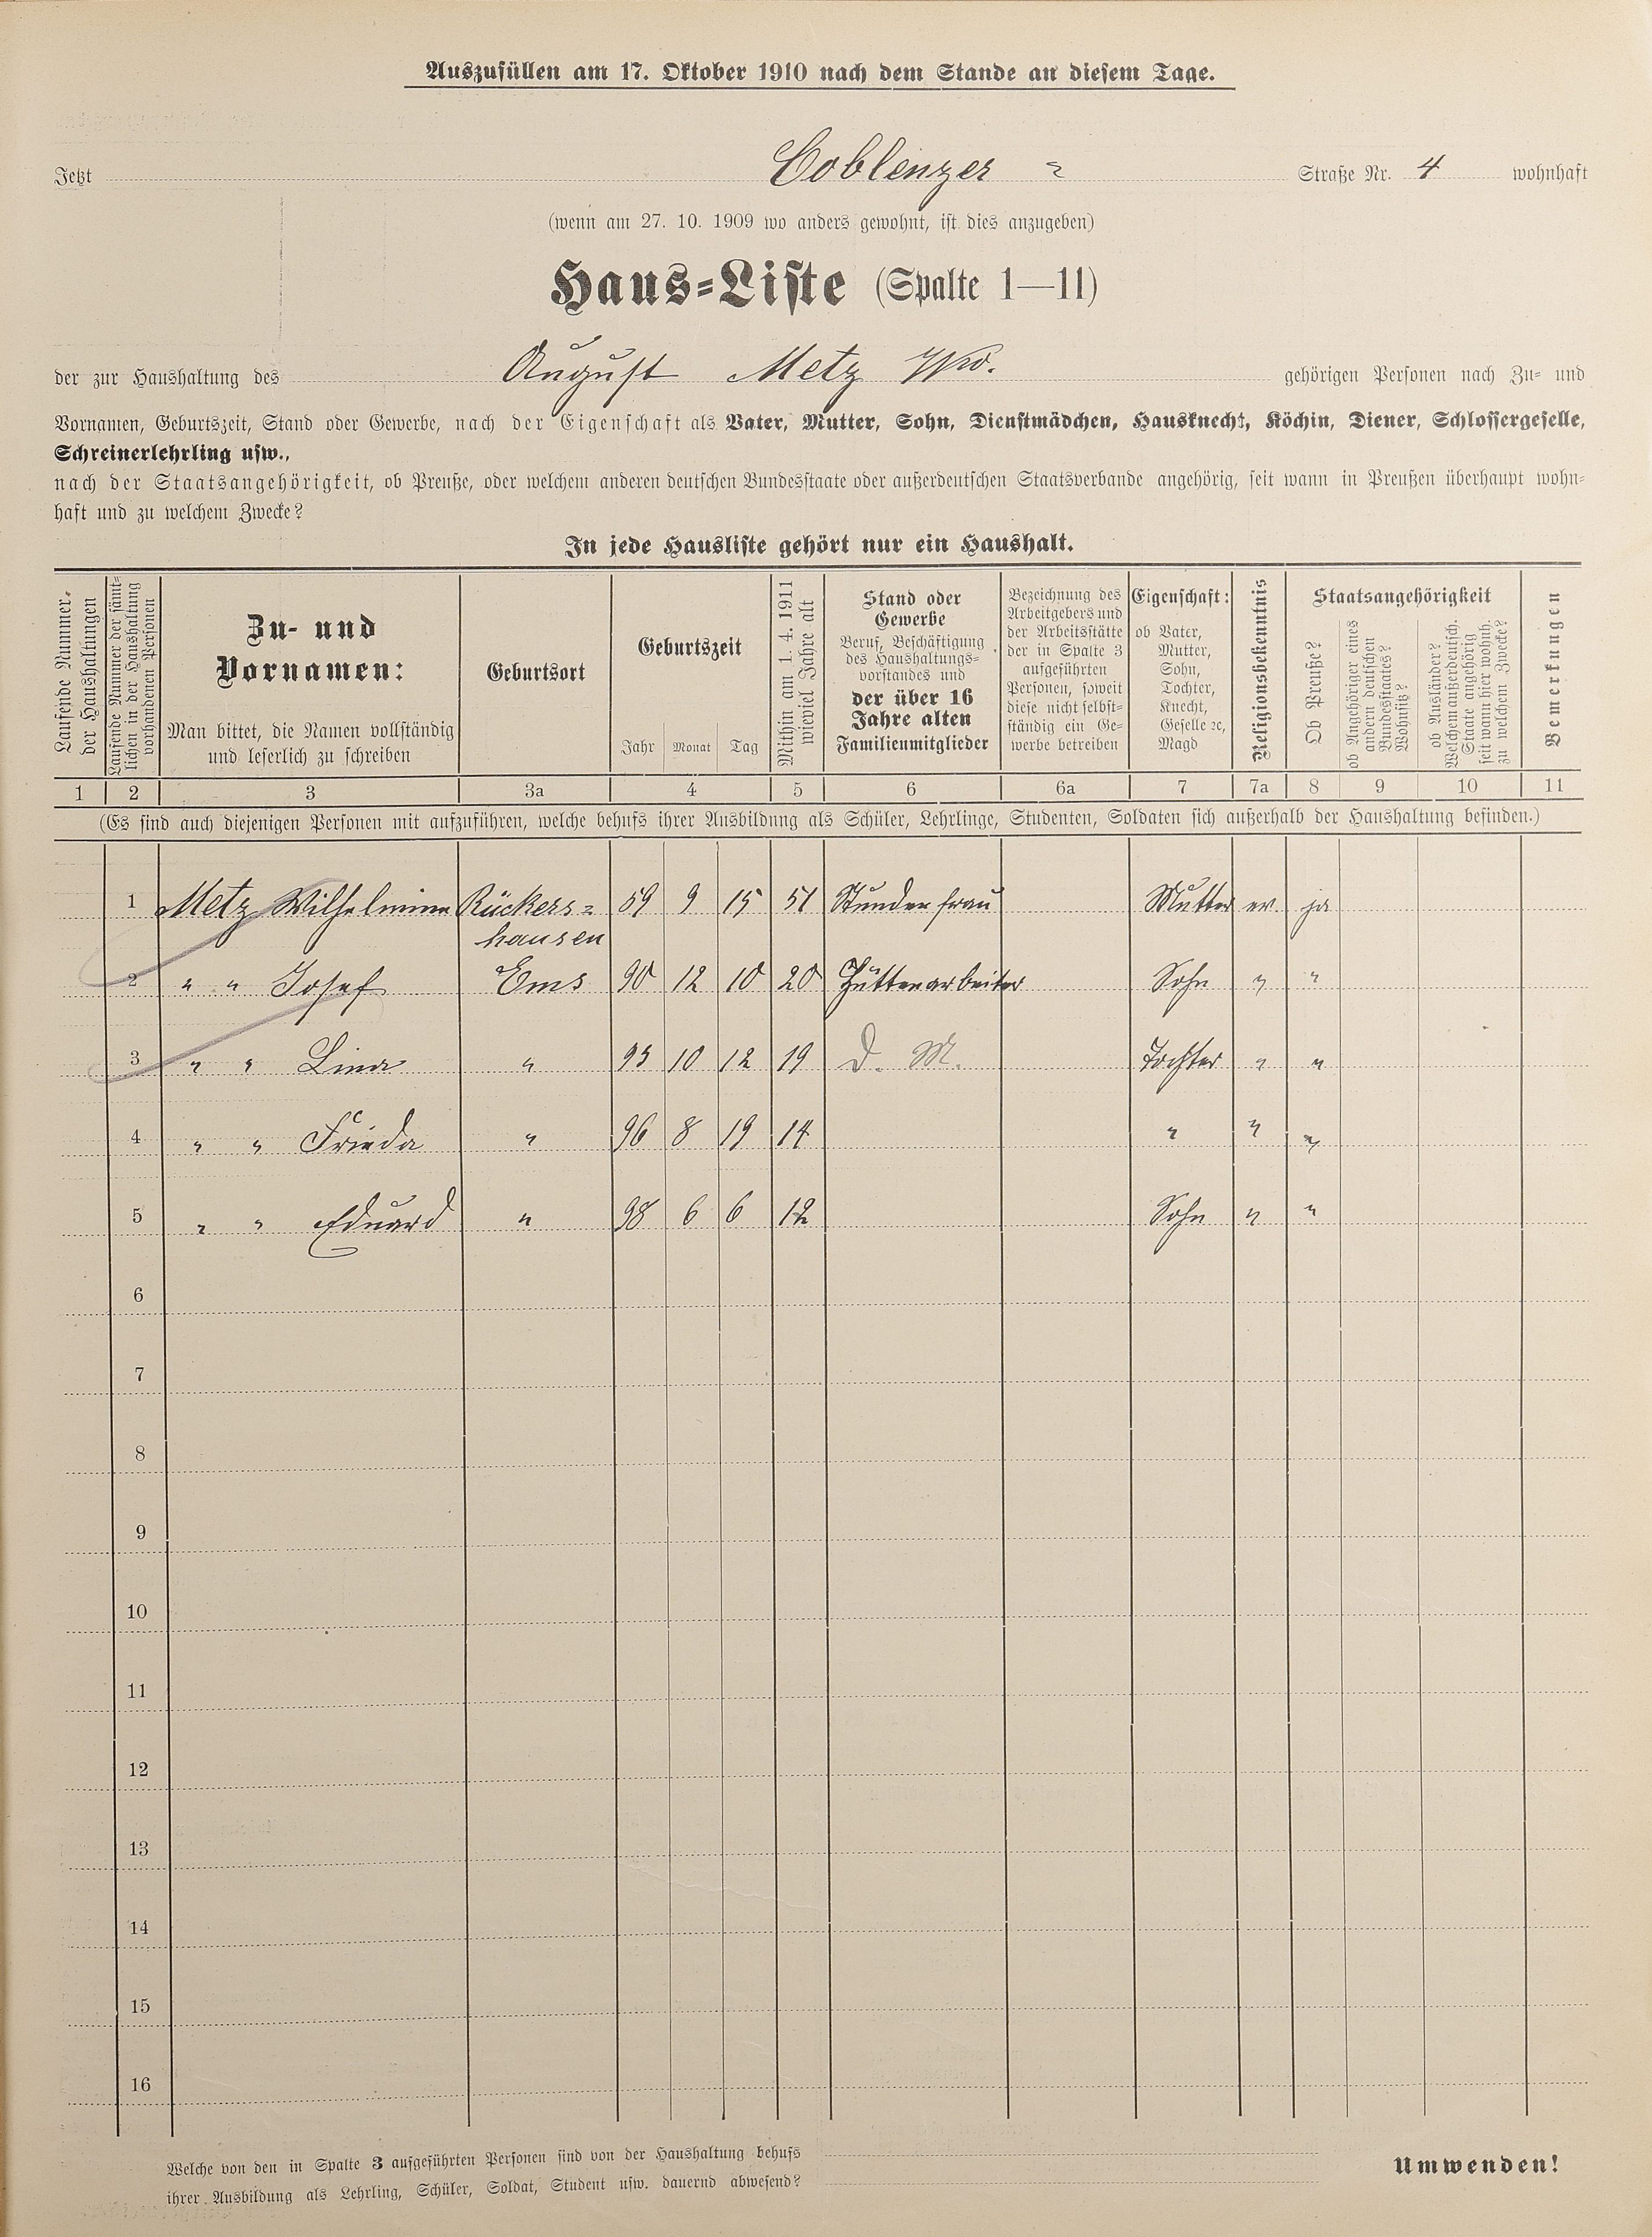 Auszufüllen am 17. Oktober 1910 nach dem Stande an diesem Tage.
Jetzt Coblenzer " Straße Nr. 4 wohnhaft
(wenn am 27. 10. 1909 wo anders gewohnt, ist dies anzugeben)
Haus-Liste (Spalte 1—11)
der zur Haushaltung des August Metz Ww. gehörigen Personen nach Zu- und
Vornamen, Geburtszeit, Stand oder Gewerbe, nach der Eigenschaft als Vater, Mutter, Sohn, Dienstmädchen, Hausknecht, Köchin, Diener, Schlossergeselle,
Schreinerlehrling usw.,
nach der Staatsangehörigkeit, ob Preuße, oder welchem anderen deutschen Bundesstaate oder außerdeutschen Staatsverbande angehörig, seit wann in Preußen überhaupt wohn-
haft und zu welchem Zwecke?
In jede Hausliste gehört nur ein Haushalt.
Laufende Nummer der Haushaltungen
Laufende Nummer der sämt-
lichen in der Haushaltung
vorhandenen Personen
Zu- und
Vornamen:
Man bittet, die Namen vollständig
und leserlich zu schreiben
Geburtsort
Geburtszeit
Jahr Monat Tag
Mithin am 1. 4. 1911
wieviel Jahre alt
Stand oder
Gewerbe
Beruf, Beschäftigung
des Haushaltungs-
vorstandes und
der über 16
Jahre alten
Familienmitglieder
Bezeichnung des
Arbeitgebers und
der Arbeitsstätte
der in Spalte 3
aufgeführten
Personen, soweit
diese nicht selbst-
ständig ein Ge-
werbe betreiben
Eigenschaft:
ob Vater,
Mutter,
Sohn,
Tochter,
Knecht,
Geselle ec,
Magd
Religionsbekenntnis
Staatsangehörigkeit
Ob Preuße?
ob Angehöriger eines
andern deutschen
Bundesstaates?
Wohnsitz?
ob Ausländer?
Welchem außerdeutsch.
Staate angehörig
seit wann hier wohnh.
zu welchem Zwecke?
Bemerkungen
1 2 3 3a 4 5 6 6a 7 7a 8 9 10 11
(Es sind auch diejenigen Personen mit aufzuführen, welche behufs ihrer Ausbildung als Schüler, Lehrlinge, Studenten, Soldaten sich außerhalb der Haushaltung befinden.)
1 Metz Wilhelmine Rückers= 59 9 15 51 Stundenfrau Mutter ev. ja
hausen
2 " " Josef Ems 90 12 10 20 Hüttenarbeiter Sohn " "
3 " " Lina " 93 10 12 19 D. M. Tochter " "
4 " " Frieda " 96 8 19 14 " " "
5 " " Eduard " 98 6 6 12 Sohn " "
6
7
8
9
10
11
12
13
14
15
16
Welche von den in Spalte 3 aufgeführten Personen sind von der Haushaltung behufs
ihrer Ausbildung als Lehrling, Schüler, Soldat, Student usw. dauernd abwesend?
Umwenden!